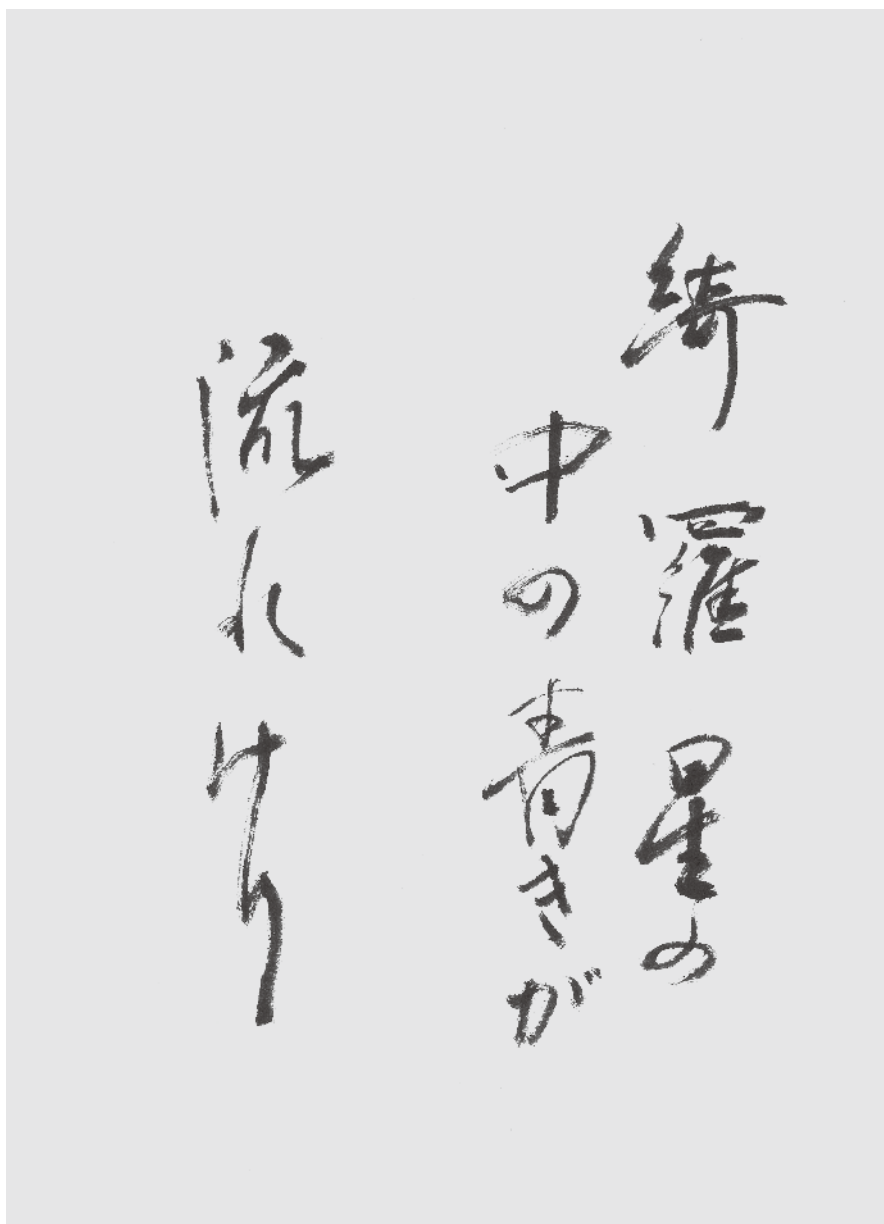 綺羅星の
中の青きが
流れけり